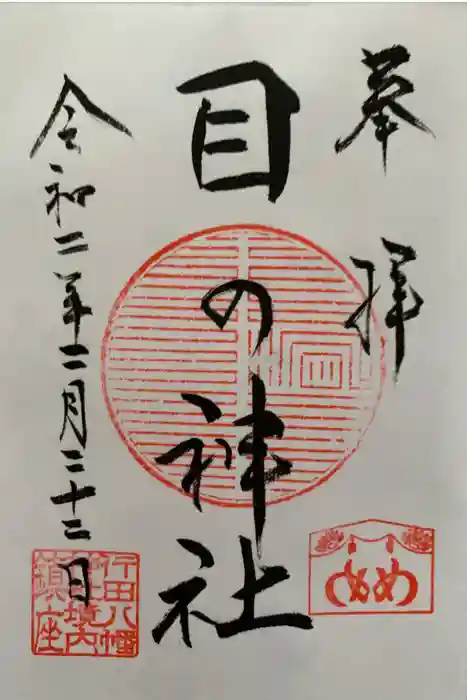 奉拝
目の神社
令和二年二月二十二日
め め
行田八幡
神社境内
鎮座